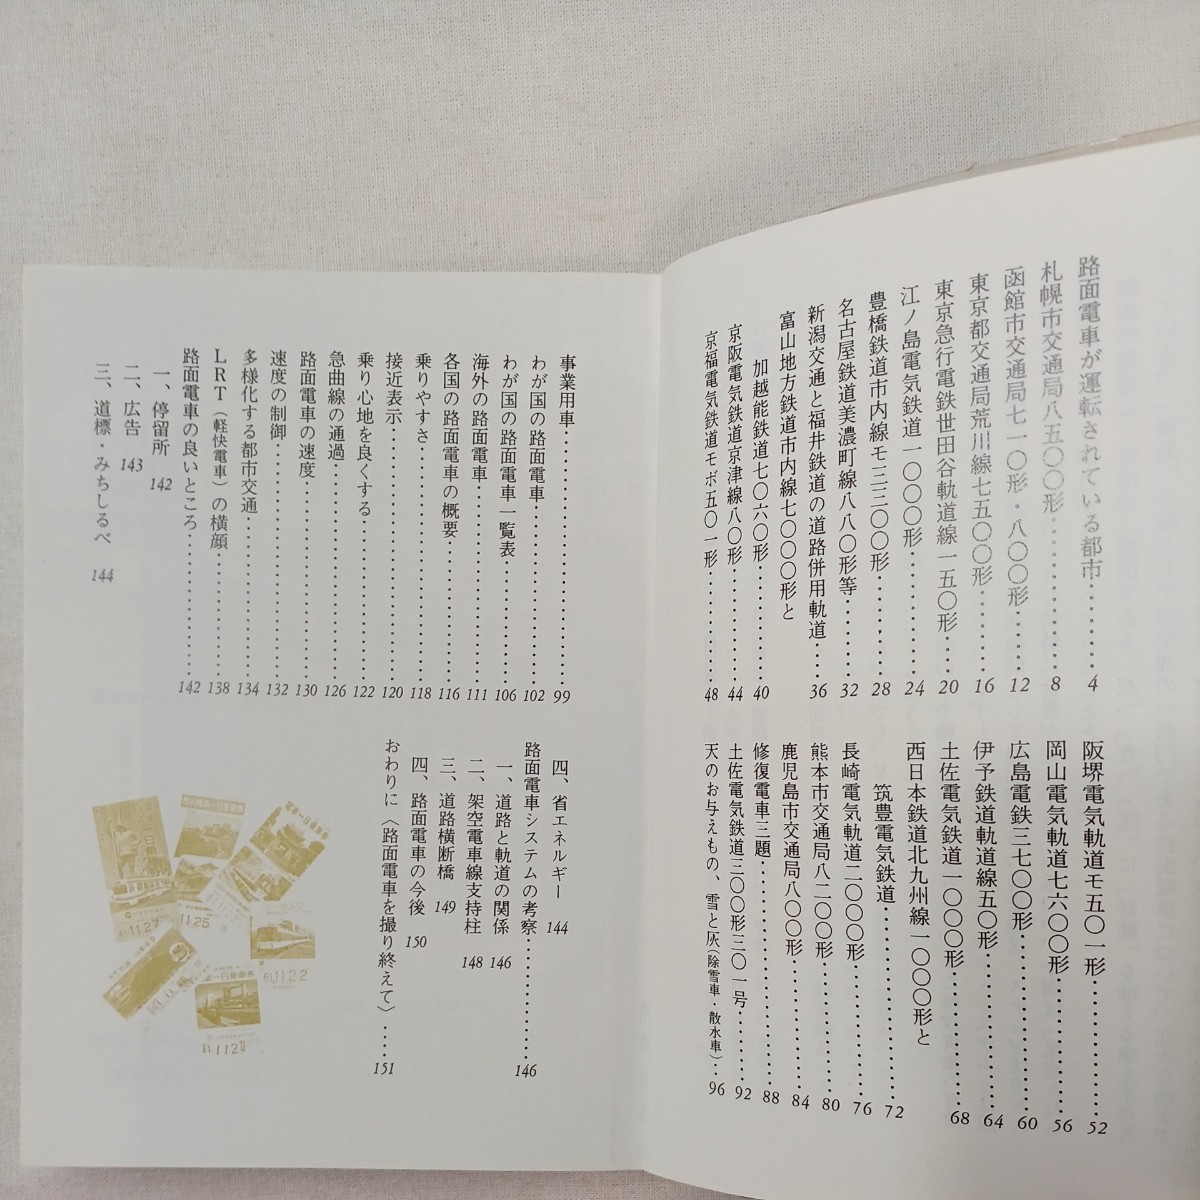 路面電車が運転されている都市………4
札幌市交通局八五〇〇形………8
函館市交通局七一〇形・八〇〇形………12
東京都交通局荒川線七五〇〇形………16
東京急行電鉄世田谷軌道線一五〇形………20
江ノ島電気鉄道一〇〇〇形………24
豊橋鉄道市内線モ三三〇〇形………28
名古屋鉄道美濃町線八八〇形等………32
新潟交通と福井鉄道の道路併用軌道………36
富山地方鉄道市内線七〇〇〇形と
加越能鉄道七〇六〇形………40
京阪電気鉄道京津線八〇形………44
京福電気鉄道モボ五〇一形………48
阪堺電気軌道モ五〇一形………52
岡山電気軌道七六〇〇形………56
広島電鉄三七〇〇形………60
伊予鉄道軌道線五〇形………64
土佐電気鉄道一〇〇〇形………68
西日本鉄道北九州線一〇〇〇形と
筑豊電気鉄道………72
長崎電気軌道二〇〇〇形………76
熊本市交通局八二〇〇形………80
鹿児島市交通局八〇〇形………84
修復電車三題………88
土佐電気鉄道三〇〇形三〇一号………92
天のお与えもの、雪と灰(除雪車・散水車)…96
事業用車………99
わが国の路面電車………102
わが国の路面電車一覧表………106
海外の路面電車………111
各国の路面電車の概要………116
乗りやすさ………118
接近表示………120
乗り心地を良くする………122
急曲線の通過………126
路面電車の速度………130
速度の制御………132
多様化する都市交通………134
LRT(軽快電車)の横顔………138
路面電車の良いところ………142
一、停留所 142
二、広告 143
三、道標・みちしるべ 144
四、省エネルギー 144
路面電車システムの考察………146
一、道路と軌道の関係 146
二、架空電車線支持柱 148
三、道路横断橋 149
四、路面電車の今後 150
おわりに〈路面電車を撮り終えて〉…151
11.27
11.25
11.22
11.24